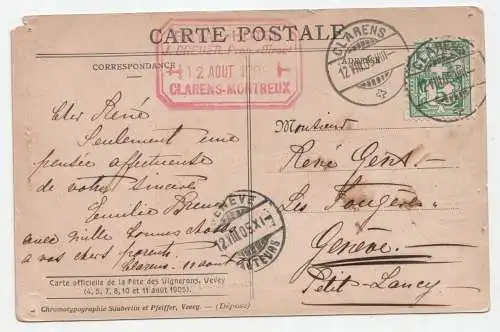 CARTE POSTALE
CORRESPONDANCE
12 AOUT 1905
CLARENS-MONTREUX
CLARENS
12.VIII.05.XII
CLARENS
12.VIII.05
Cher René
Seulement une
pensée affectueuse
de votre sincère
Emilie
avec mille bonnes choses
à vos chers parents.
Clarens 11 août
GENÈVE
12.VIII.05.XI
Monsieur
René Gent
Les Fougères
Genève.
Petit-Lancy
Carte officielle de la Fête des Vignerons, Vevey
(4, 5, 7, 8, 10 et 11 août 1905).
Chromotypographie Säuberlin et Pfeiffer, Vevey. — (Déposé)